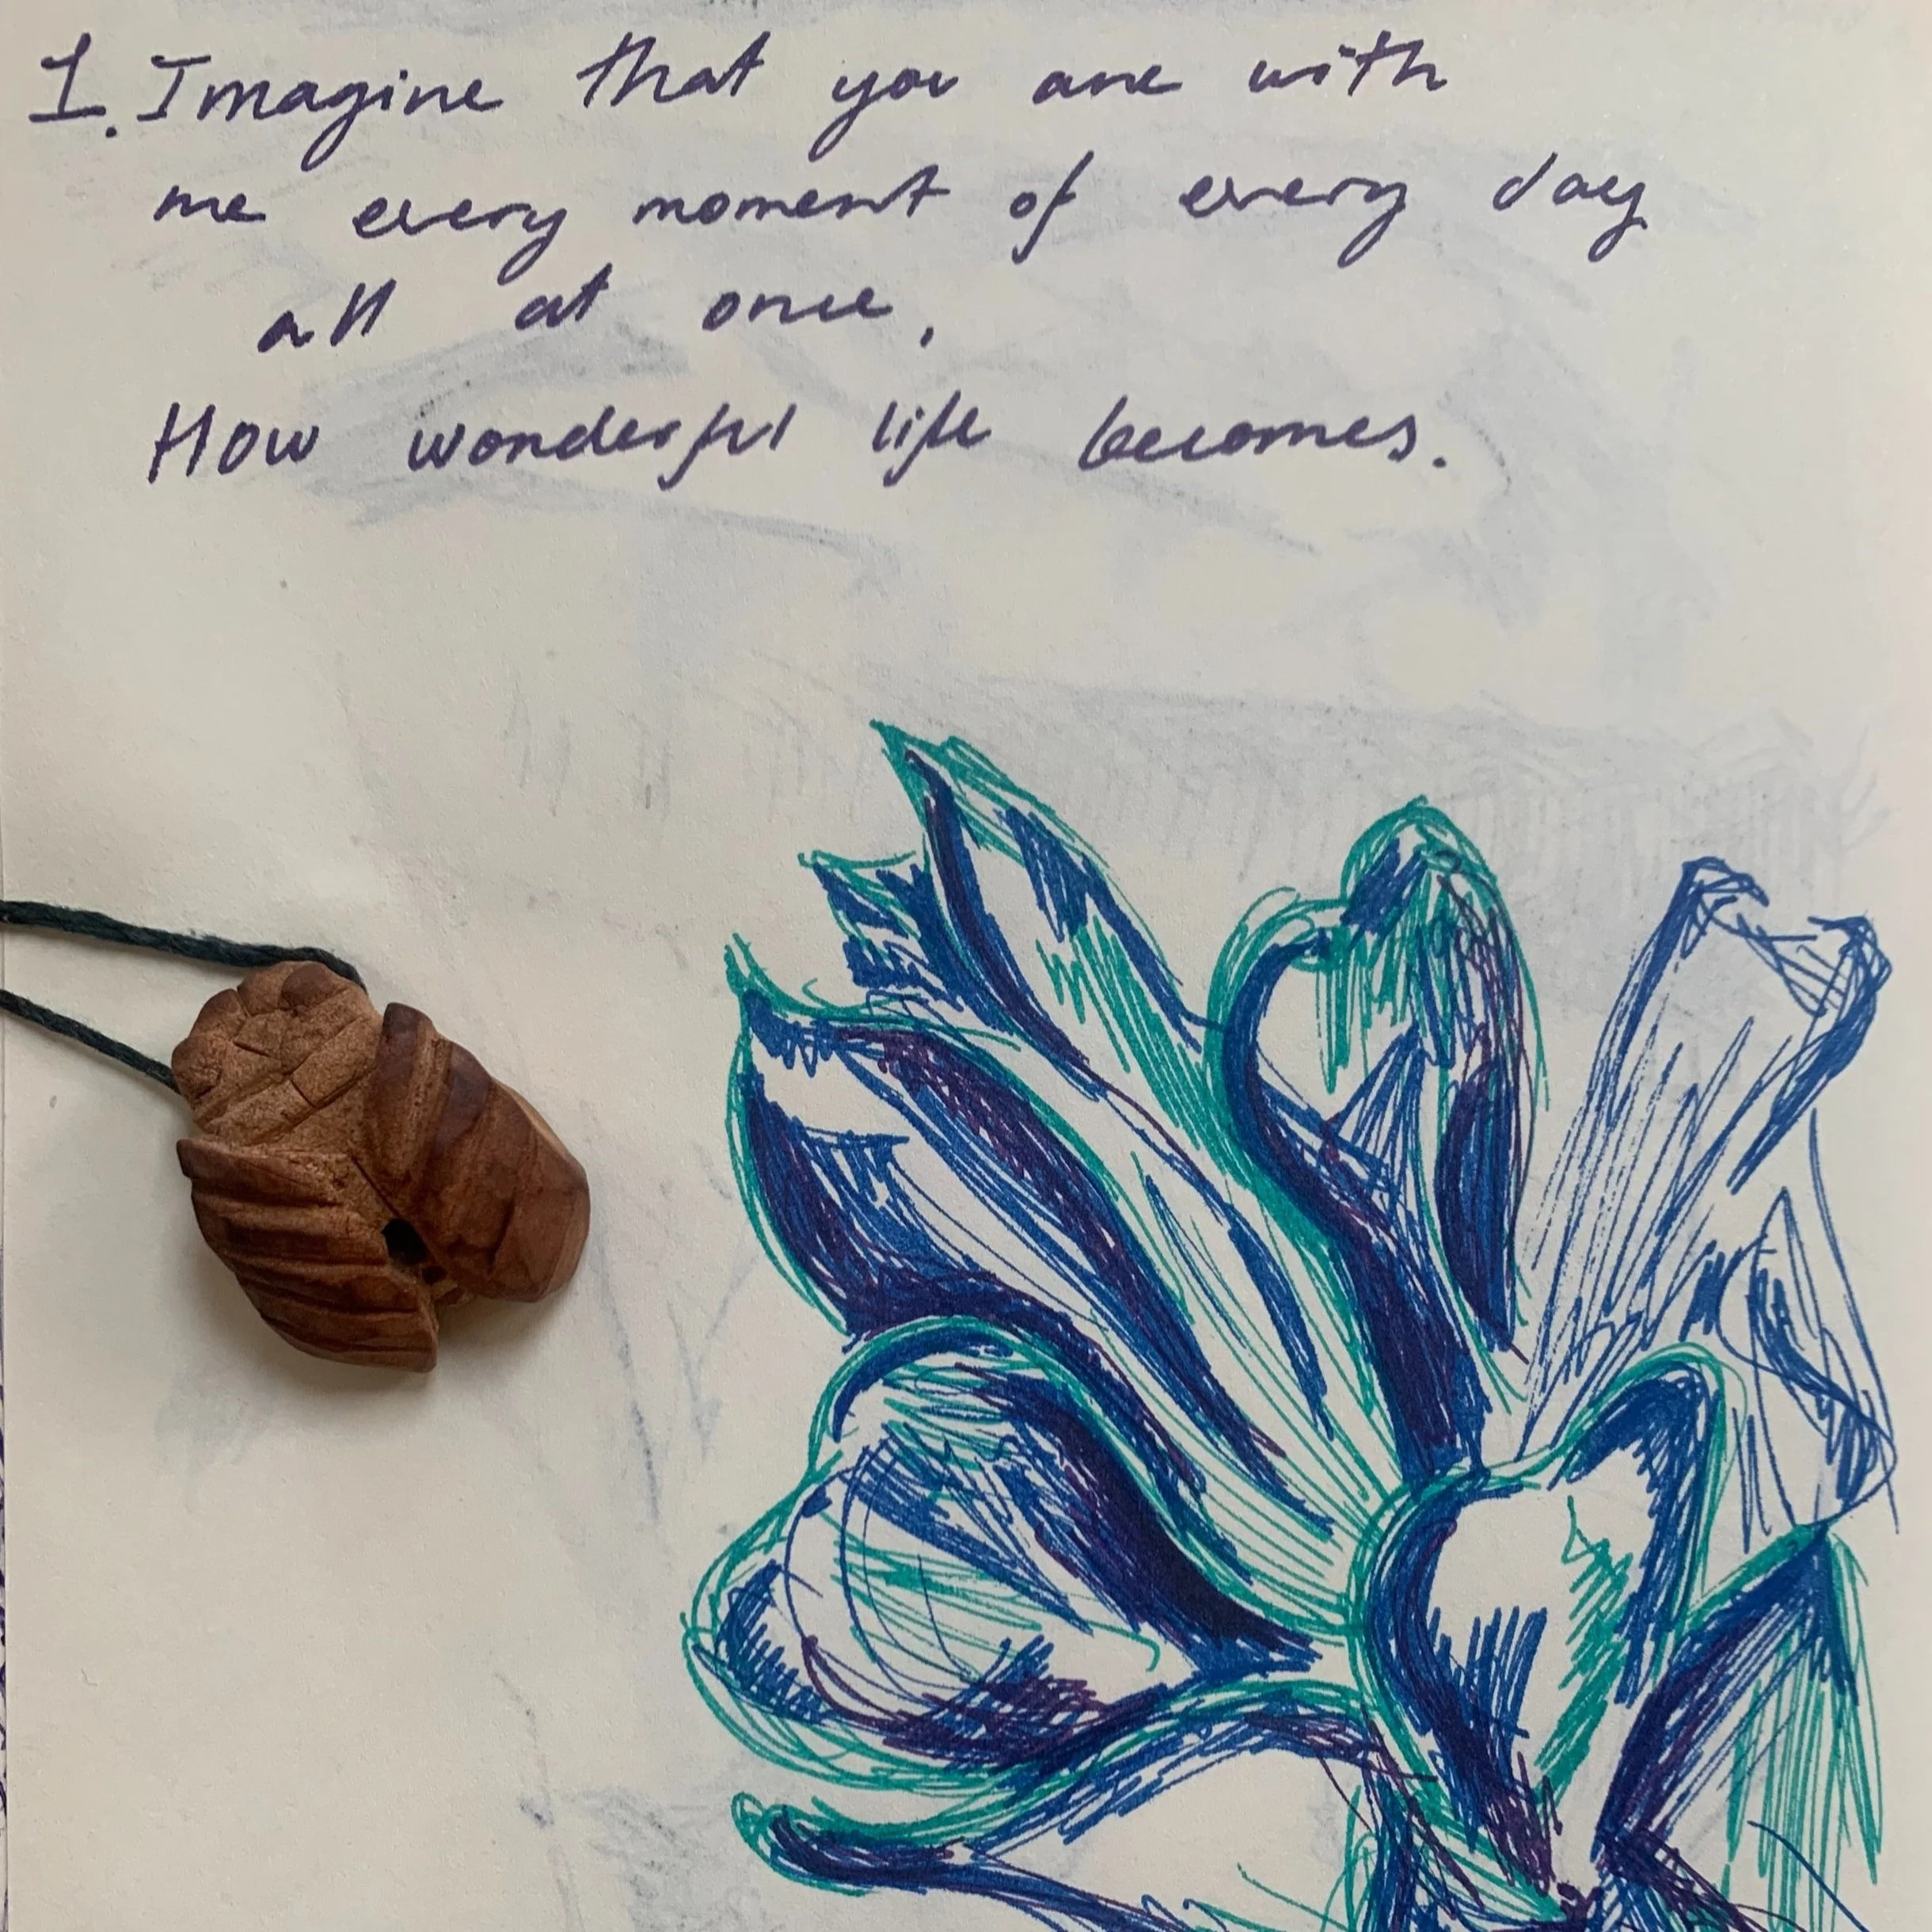 1. Imagine that you are with
me every moment of every day
all at once,
How wonderful life becomes.